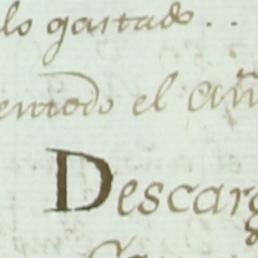 lo gastado..
entodo el añ
Descarg